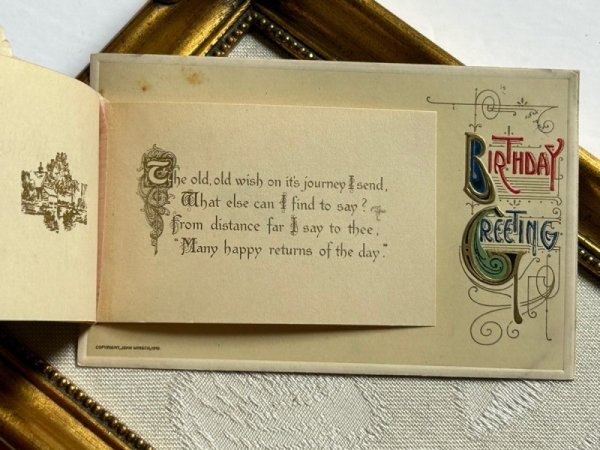 The old, old wish on it's journey I send,
What else can I find to say?
From distance far I say to thee,
"Many happy returns of the day."
BIRTHDAY
GREETING
COPYRIGHT, JOHN WINSCH, 1910.